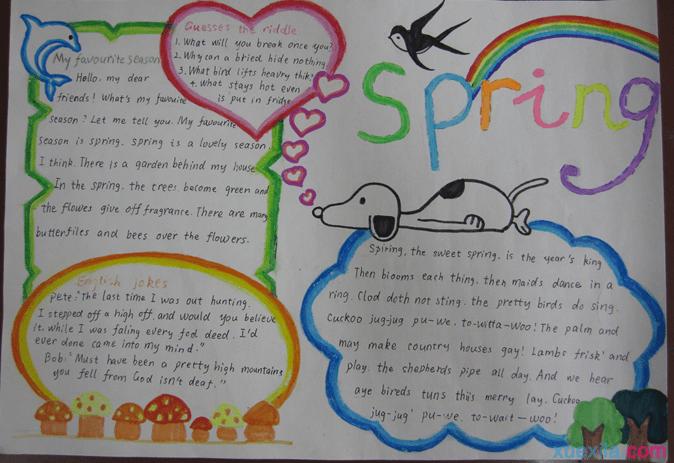 My favourite season
Hello, my dear
friends! What's my favouire
season? Let me tell you. My favourite
season is spring. Spring is a lovely season,
I think. There is a garden behind my house
In the spring, the trees, become green and
the flowes give off fragrance. There are many
butterfiles and bees over the flowers.
Guesses the riddle
1. What will you break once you?
2. Why can a bried hide nothing
3. What bird lifts heavry thik?
4. What stays hot even
is put in fridge
Spring
English jokes
Pete: "The last time I was out hunting.
I stepped off a high off, and would you believe
it, while I was faling every fod deed. I'd
ever done came into my mind."
Bob: "Must have been a pretty high mountains
you fell from God isn't deaf."
Spiring, the sweet spring, is the year's king
Then biooms each thing, then maids dance in a
ring. Clod doth not sting, the pretty birds do sing.
Cuckoo jug-jug pu-we, to-witta-Woo! The palm and
may make country houses gay! Lambs frisk' and
play, the shepherds pipe all day. And we hear
aye bireds tuns this merry lay. Cuckoo
jug-jug' pu-we, to-wait-woo!
xuexila.com